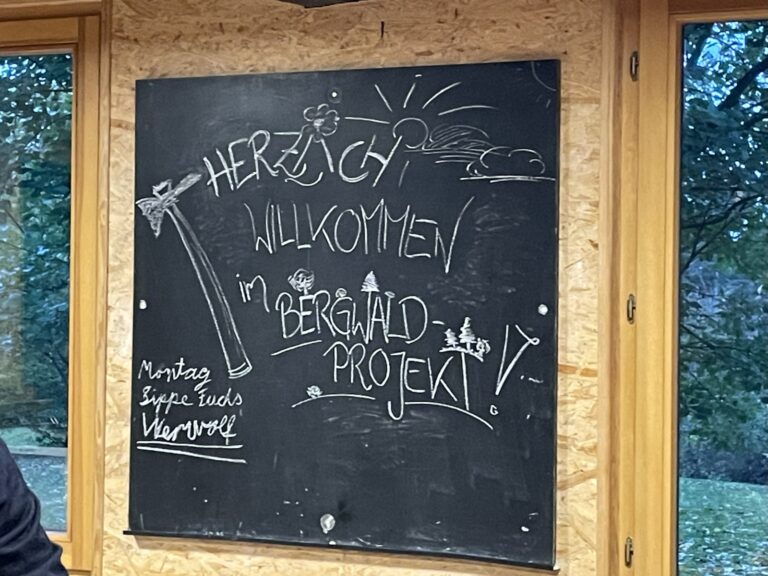 HERZLICH
WILLKOMMEN
im BERGWALD-
PROJEKT!
Montag
Sippe Fuchs
Werwolf